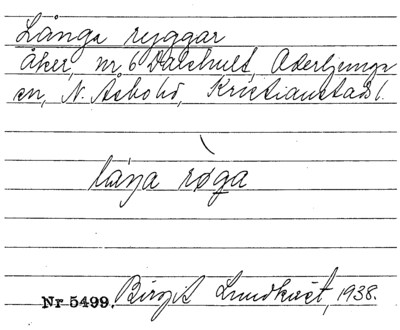 Långa ryggar
åker, nr 6 Dalshult, Oderljunga
sn, N. Åsbo hd, Kristianstads l.
låŋa røga
Nr 5499. Birgit Lundkvist, 1938.